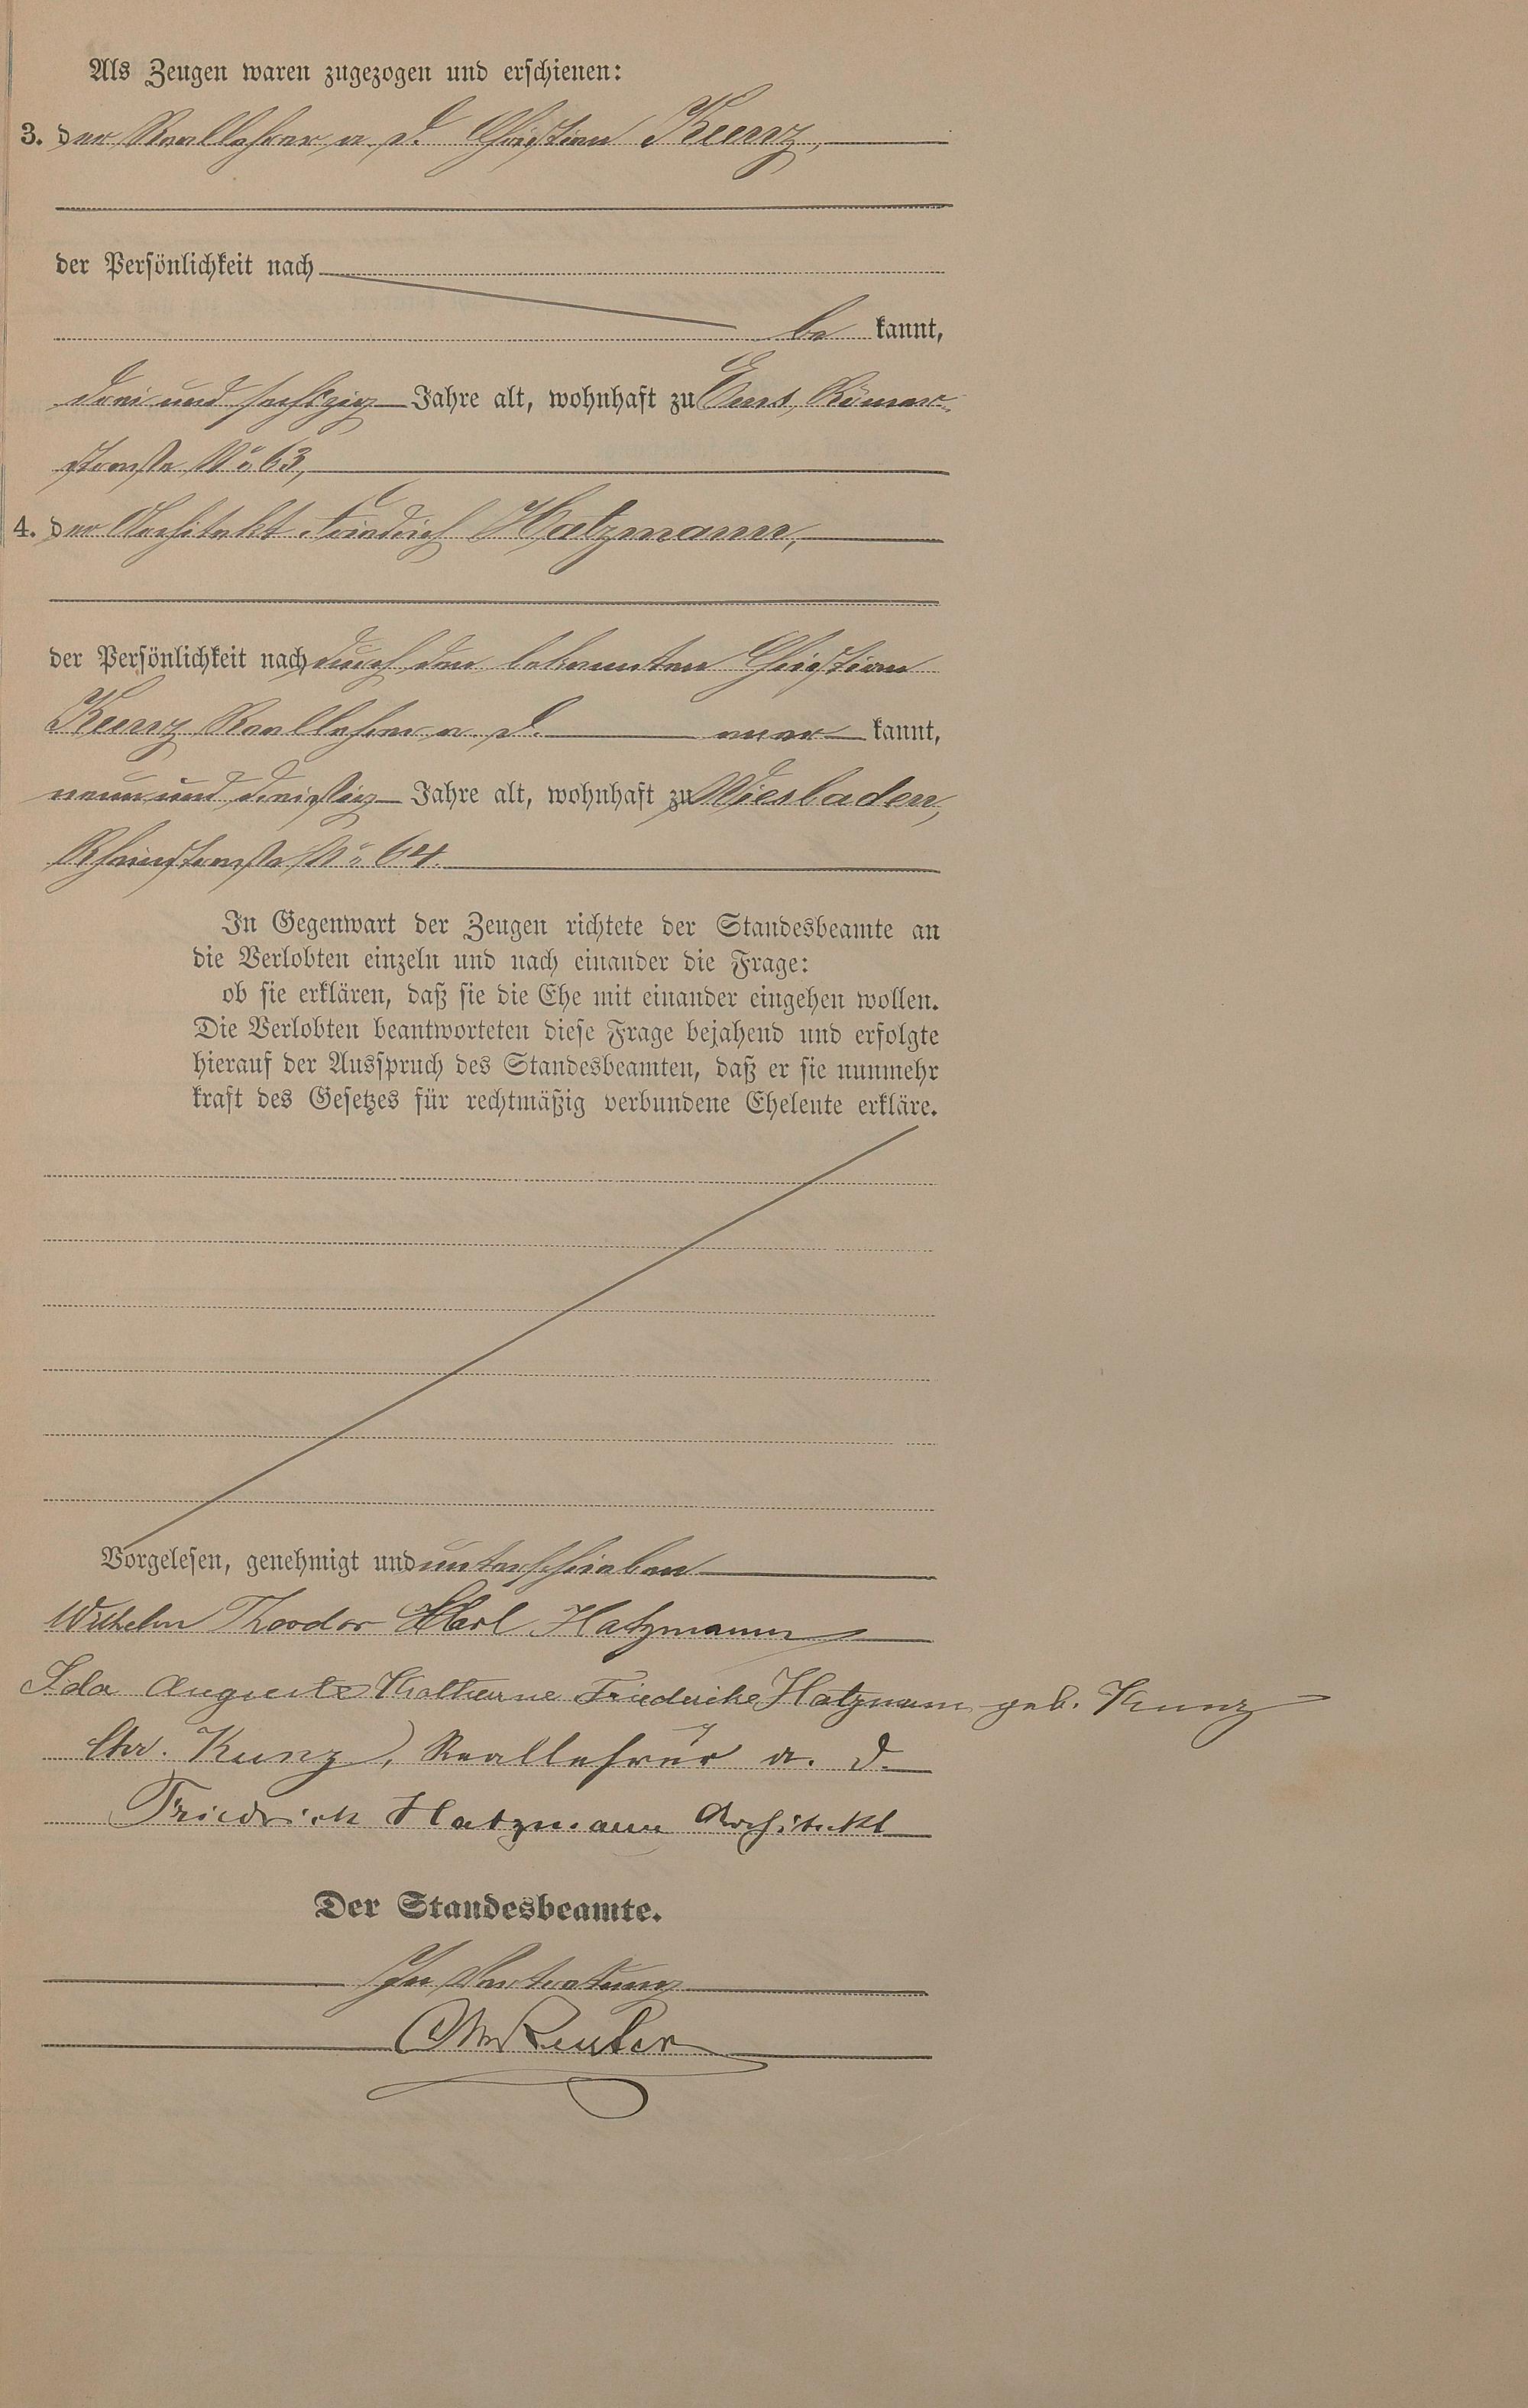 Als Zeugen waren zugezogen und erschienen:
3. der Reallehrer a. D. Christian Kunz,
der Persönlichkeit nach
be kannt,
drei und sechszig Jahre alt, wohnhaft zu Ems, Römer-
straße No 63,
4. der Architekt Friedrich Hatzmann,
der Persönlichkeit nach durch den bekannten Christian
Kunz Reallehrer a. D. aner kannt,
neun und dreißig Jahre alt, wohnhaft zu Wiesbaden,
Rheinstraße No 64.
In Gegenwart der Zeugen richtete der Standesbeamte an
die Verlobten einzeln und nach einander die Frage:
ob sie erklären, daß sie die Ehe mit einander eingehen wollen.
Die Verlobten beantworteten diese Frage bejahend und erfolgte
hierauf der Ausspruch des Standesbeamten, daß er sie nunmehr
kraft des Gesetzes für rechtmäßig verbundene Eheleute erkläre.
Vorgelesen, genehmigt und unterschrieben
Wilhelm Theodor Karl Hatzmann
Ida Auguste Katharine Friedericke Hatzmann geb. Kunz
Chr. Kunz, Reallehrer a. D.
Friedrich Hatzmann Architekt
Der Standesbeamte.
In Vertretung
Reuter